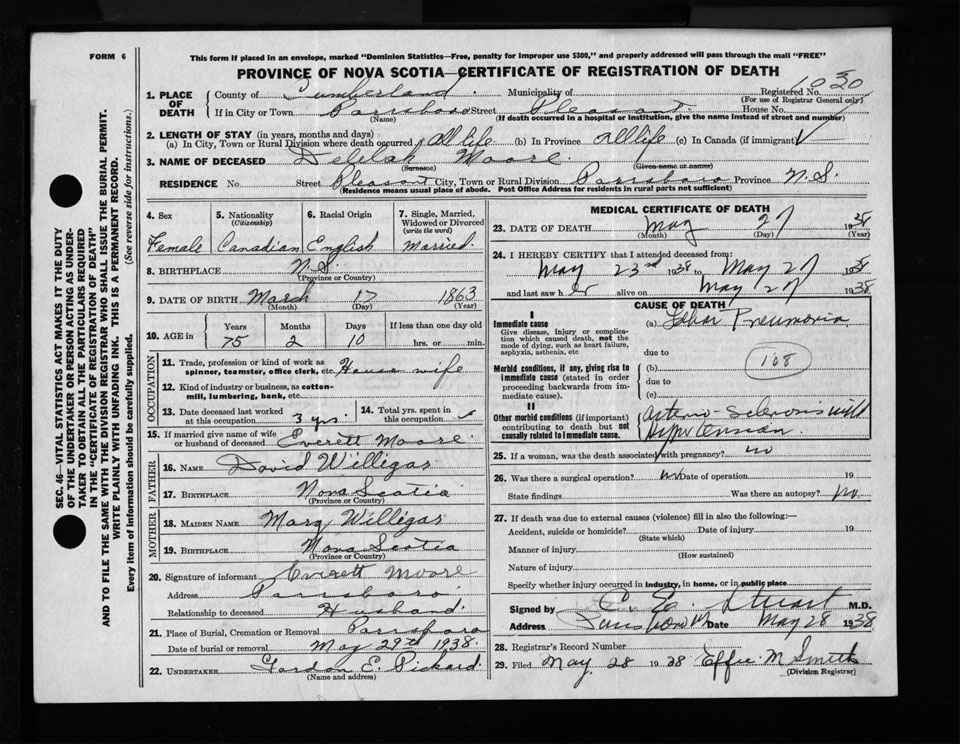 FORM 6
This form if placed in an envelope, marked "Dominion Statistics—Free, penalty for improper use $300," and properly addressed will pass through the mail "FREE"
PROVINCE OF NOVA SCOTIA—CERTIFICATE OF REGISTRATION OF DEATH
1. PLACE OF DEATH { County of Cumberland Municipality of Registered No. 1030
(For use of Registrar General only)
If in City or Town Parrsboro Street Pleasant House No.
(Name) (If death occurred in a hospital or institution, give the name instead of street and number)
2. LENGTH OF STAY (in years, months and days)
(a) In City, Town or Rural Division where death occurred All life (b) In Province All life (c) In Canada (if immigrant)
3. NAME OF DECEASED Delilah Moore
(Surname) (Given name or names)
RESIDENCE No. Street Pleasant City, Town or Rural Division Parrsboro Province N.S.
(Residence means usual place of abode. Post Office Address for residents in rural parts not sufficient)
4. Sex Female
5. Nationality (Citizenship) Canadian
6. Racial Origin English
7. Single, Married, Widowed or Divorced (write the word) Married
8. BIRTHPLACE N.S.
(Province or Country)
9. DATE OF BIRTH March 17 1863
(Month) (Day) (Year)
10. AGE in Years Months Days If less than one day old
75 2 10 hrs. or min.
OCCUPATION
11. Trade, profession or kind of work as spinner, teamster, office clerk, etc. House wife
12. Kind of industry or business, as cotton-mill, lumbering, bank, etc.
13. Date deceased last worked at this occupation 3 yrs. 14. Total yrs. spent in this occupation
15. If married give name of wife or husband of deceased Everett Moore
FATHER
16. NAME David Willigar
17. BIRTHPLACE Nova Scotia
(Province or Country)
MOTHER
18. MAIDEN NAME Mary Willigar
19. BIRTHPLACE Nova Scotia
(Province or Country)
20. Signature of informant Everett Moore
Address Parrsboro
Relationship to deceased Husband
21. Place of Burial, Cremation or Removal Parrsboro
Date of burial or removal May 29th 1938
22. UNDERTAKER Gordon E. Pickard
(Name and address)
MEDICAL CERTIFICATE OF DEATH
23. DATE OF DEATH May 27 1938
(Month) (Day) (Year)
24. I HEREBY CERTIFY that I attended deceased from:
May 23rd 1938 to May 27 1938
and last saw her alive on May 27 1938
CAUSE OF DEATH
I
Immediate cause (a) Lobar Pneumonia
Give disease, injury or complication which caused death, not the mode of dying, such as heart failure, asphyxia, asthenia, etc.
due to
Morbid conditions, if any, giving rise to immediate cause (stated in order proceeding backwards from immediate cause). (b)
108
due to
(c)
II
Other morbid conditions (if important) contributing to death but not causally related to immediate cause. Arterio-sclerosis with
Hypertension
25. If a woman, was the death associated with pregnancy? no
26. Was there a surgical operation? no Date of operation 19
State findings Was there an autopsy? no.
27. If death was due to external causes (violence) fill in also the following:—
Accident, suicide or homicide? Date of injury 19
(State which)
Manner of injury
(How sustained)
Nature of injury
Specify whether injury occurred in industry, in home, or in public place
Signed by C. E. Stuart M.D.
Address Date May 28 1938
28. Registrar's Record Number
29. Filed May 28 1938 Effie M Smith
(Division Registrar)
SEC. 46—VITAL STATISTICS ACT MAKES IT THE DUTY
OF THE UNDERTAKER OR PERSON ACTING AS UNDER-
TAKER TO OBTAIN ALL THE PARTICULARS REQUIRED
IN THE "CERTIFICATE OF REGISTRATION OF DEATH"
AND TO FILE THE SAME WITH THE DIVISION REGISTRAR WHO SHALL ISSUE THE BURIAL PERMIT.
WRITE PLAINLY WITH UNFADING INK. THIS IS A PERMANENT RECORD.
Every item of information should be carefully supplied. (See reverse side for instructions.)